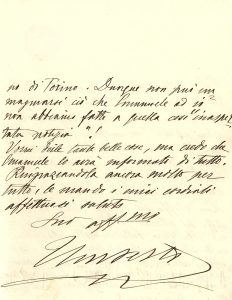 no di Torino. Dunque non può im
magmarsi ciò che Emanuele ed io
non abbiamo fatti a quella così "inaspet
tata notizia"!
Vorrei dirle tante belle cose, ma credo che
Emanuele la avrà informata di tutto.
Ringraziandola ancora molto per
tutto, le mando i miei cordiali
affettuosi saluti
Suo aff.mo
Umberto